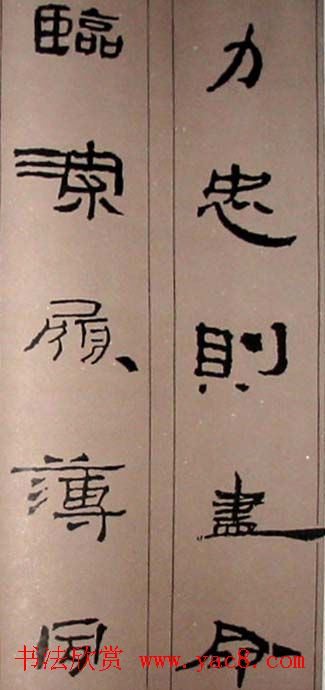 力忠則盡命
臨深履薄夙
书法欣赏 www.yac8.com